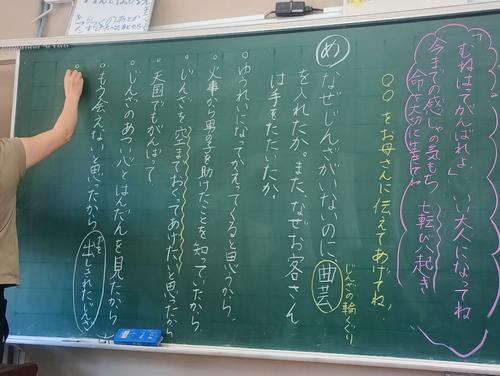 むねはってがんばれよ」 いい大人になってね
今までの感しゃの気もち 七転び八起き
命を大切に生きてね
○○をお母さんに伝えてあげてね!
め なぜじんざがいないのに曲芸
じんざの輪くぐり
を入れたか。また、なぜお客さん
は手をたたいたか。
○ゆうれいになってかえってくると思うから。
○火事から男の子を助けたことを知っていたから。
○じんざを空までおくってあげたいと思ったから
○天国でもがんばって。
○じんざのあつい心とはんだんを見たから
○もう会えないと思ったから